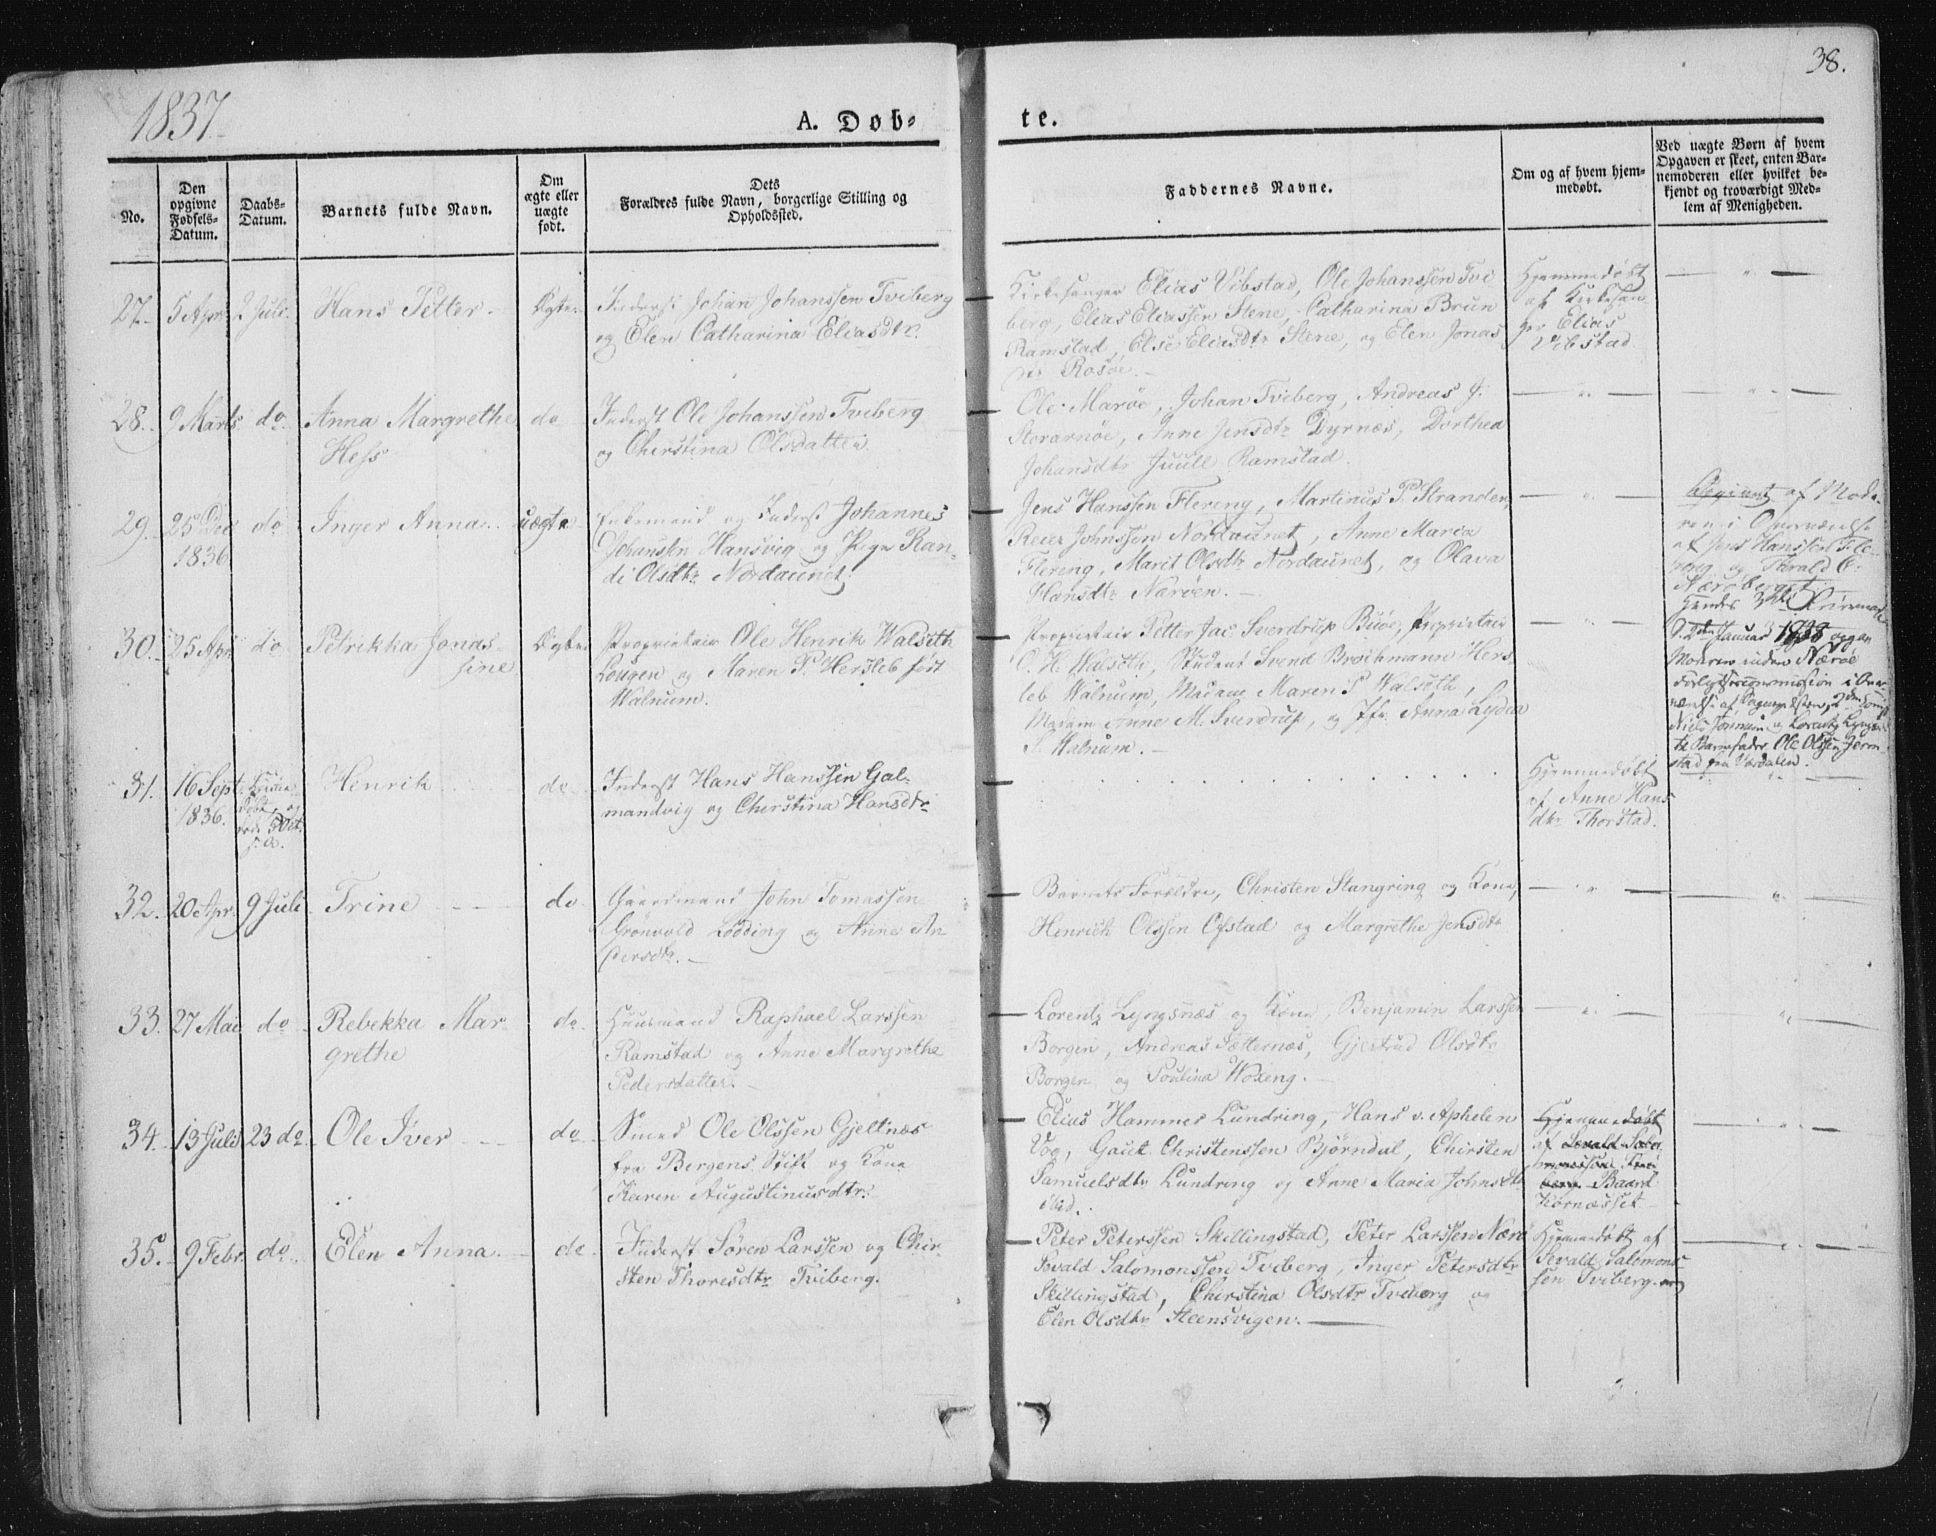 1837.
38.
A. Døb-
te.
No.
Den opgivne Fødsels-Datum.
Daabs-Datum.
Barnets fulde Navn.
Om ægte eller uægte født.
Dets Forældres fulde Navn, borgerlige Stilling og Opholdssted.
Faddernes Navne.
Om og af hvem hjem-medøbt.
Ved uægte Børn af hvem Opgaven er skeet, enten Bar-nemoderen eller hvilket be-kjendt og troværdigt Med-lem af Menigheden.
27. 5 Apr. 2 Juli. Hans Petter. Ægte
Inderst Johan Johanssen Tviberg
og Elen Catharina Eliasdtr.
Kirkesanger Elias Vibstad, Ole Johanssen Tvi
berg, Elias Eliassen Stene, Catharina Brun
Ramstad, Else Eliasdtr Stene, og Elen Jonas
dtr Rosøe.
Hjemmedøbt
af Kirkesan
ger Elias
Vibstad
28. 9 Marts do. Anna Margrethe do
Hess
Inderst Ole Johanssen Tviberg
og Chirstina Olsdatter
Ole Marøe, Johan Tviberg, Andreas J.
Storarnøe, Anne Jensdtr Dyrnæs, Dorthea
Johansdtr Juull Ramstad.
29. 25 Dec 1836. do Inger Anna. uægte
Enkemand og Inderst Johannes
Johansen Hansvig og Pige Ran-
di Olsdtr Nordaunet.
Jens Hanssen Flereng, Martinus P. Stranden,
Reier Johnssen Nordaunet, Anne Maria
Flereng, Marit Olsdtr Nordaunet, og Olava
Hansdtr Nærøen.
Opgivet af Mode-
ren i Overværelse
af Jens Hanssen Fle-
reng og Harald
Hendes 3die
Januar 1838 opgav
Moderen inden Nærøe
Forligelsescommission i Over-
værelse af
Barnefader Ole Olssen Jerm
stad fra Værdalen.
30. 25 Apr do Petrikka Jonas- Ægte
sine
Proprietair Ole Henrik Walseth
Lougen og Maren P. Hersleb født
Walnum.
Proprietair Petter Jac Sverdrup Buøe, Proprietair
O. H. Walseth, Student Svend Brochmann Hers
leb Walnum, Madame Maren P Walseth,
Madam Anne M. Sverdrup, og Jfr. Anna Lydia
S. Walnum.
31. 16 Sept 1836. Henrik do
Inderst Hans Hanssen Gal-
mandvig og Chirstina Hansdtr
Hjemmedøbt
af Anne Hans
dtr Thorstad.
32. 20 Apr. 9 Juli Trine do
Gaardmand John Tomassen
Grønvold Lødding og Anne An-
dersdtr.
Barnets Forældre, Christen Stangring og Kone,
Henrich Olssen Ofstad og Margrethe Jensdtr
33. 27 Mai do Rebekka Mar- do
grethe
Huusmand Raphael Larssen
Ramstad og Anne Margrethe
Pedersdatter.
Lorentz Lyngsnæs og Kone, Benjamin Larssen
Borgen, Andreas Sætternæs, Gjertrud Olsdtr
Borgen og Poulina Woxeng.
34. 13 Juli 23 do. Ole Iver do
Smed Ole Olssen Gjeltnæs
fra Bergens Stift og Kone
Karen Augustinusdtr.
Elias Hammer Lundring, Hans v. Aphelen
Vog, Gaut Christenssen Bjørndal, Chirsten
Samuelsdtr Lundring og Anne Maria Johnsdtr
ibid.
Hjemmedøbt
af
Baard
Kornæsset
35. 9 Febr. do Elen Anna. do.
Inderst Søren Larssen og Chir-
sten Thoresdtr Tviberg.
Peter Peterssen Skillingstad, Peter Larssen Nærø
Sevald Salomonssen Tviberg, Inger Petersdtr
Skillingstad, Chirstina Olsdtr Tviberg og
Elen Olsdtr Steensvigen.
Hjemmedøbt af
Sevald Salomons-
sen Tviberg.